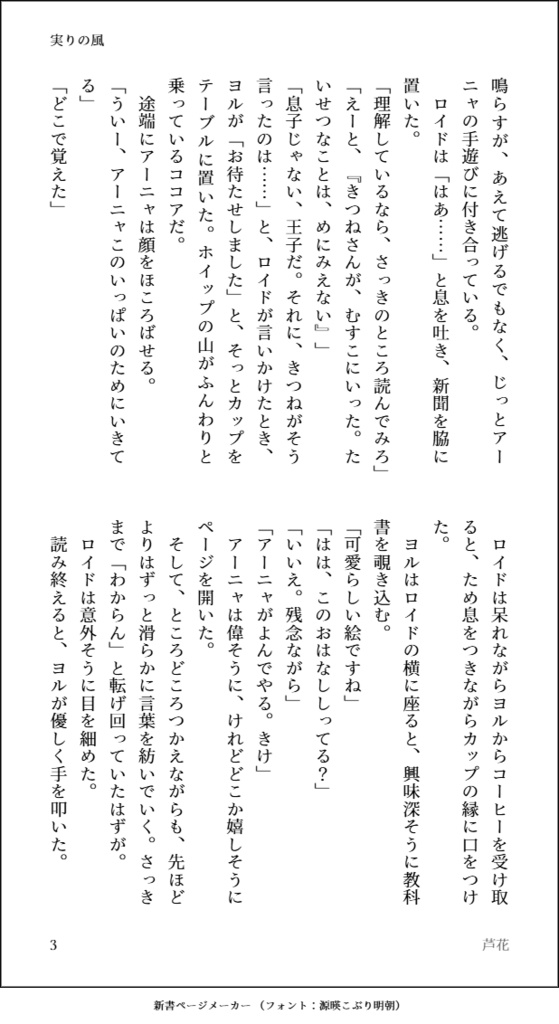 実りの風
鳴らすが、あえて逃げるでもなく、じっとアー
ニャの手遊びに付き合っている。
　ロイドは「はあ……」と息を吐き、新聞を脇に
置いた。
「理解しているなら、さっきのところ読んでみろ」
「えーと、『きつねさんが、むすこにいった。た
いせつなことは、めにみえない』」
「息子じゃない、王子だ。それに、きつねがそう
言ったのは……」と、ロイドが言いかけたとき、
ヨルが「お待たせしました」と、そっとカップを
テーブルに置いた。ホイップの山がふんわりと
乗っているココアだ。
　途端にアーニャは顔をほころばせる。
「ういー、アーニャこのいっぱいのためにいきて
る」
「どこで覚えた」
　ロイドは呆れながらヨルからコーヒーを受け取
ると、ため息をつきながらカップの縁に口をつけ
た。
　ヨルはロイドの横に座ると、興味深そうに教科
書を覗き込む。
「可愛らしい絵ですね」
「はは、このおはなししってる？」
「いいえ。残念ながら」
「アーニャがよんでやる。きけ」
　アーニャは偉そうに、けれどどこか嬉しそうに
ページを開いた。
　そして、ところどころつかえながらも、先ほど
よりはずっと滑らかに言葉を紡いでいく。さっき
まで「わからん」と転げ回っていたはずが。
　ロイドは意外そうに目を細めた。
　読み終えると、ヨルが優しく手を叩いた。
3
芦花
新書ページメーカー（フォント：源暎こぶり明朝）